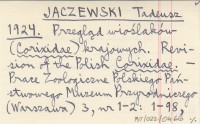 JACZEWSKI Tadeusz
1924. Przegląd wioślaków
(Corixidae) krajowych. Revi-
sion of the Polish Corixidae. -
Prace Zoologiczne Polskiego Pań-
stwowego Muzeum Przyrodniczego
(Warszawa) 3, nr 1-2: 1-98,